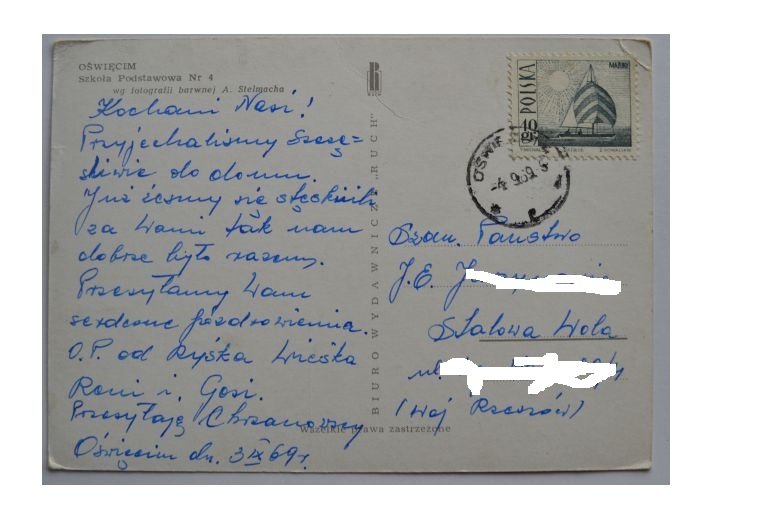 OŚWIĘCIM
Szkoła Podstawowa Nr 4
wg fotografii barwnej A. Stelmacha
Kochani Nasi!
Przyjechaliśmy szczę=
śliwie do domu.
Już żeśmy się stęsknili
za Wami tak nam
dobrze było razem.
Przesyłamy Wam
serdeczne pozdrowienia.
O.P. od Ryśka Wieśka
Reni i Gosi.
Przesyłają Chrzanowscy
Oświęcim dn. 3 IX 69 r.
BIURO WYDAWNICZE „RUCH"
Wszelkie prawa zastrzeżone
POLSKA
10
gr
OŚWIĘ
-4.9.69
Szan. Państwo
J.E.
Stalowa Wola
ul.
(woj Rzeszów)